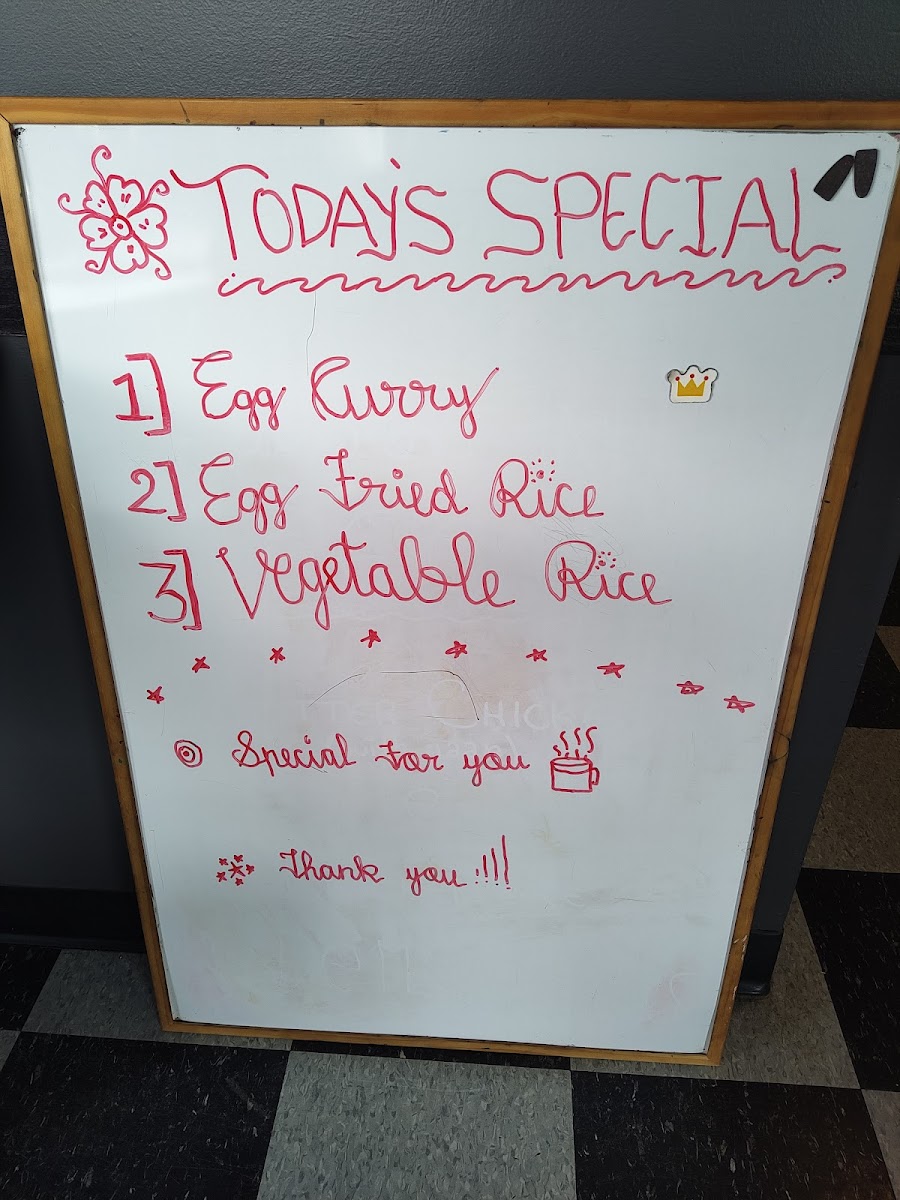 TODAY'S SPECIAL
1] Egg Curry
2] Egg Fried Rice
3] Vegetable Rice
Special For you
Thank you !!!!